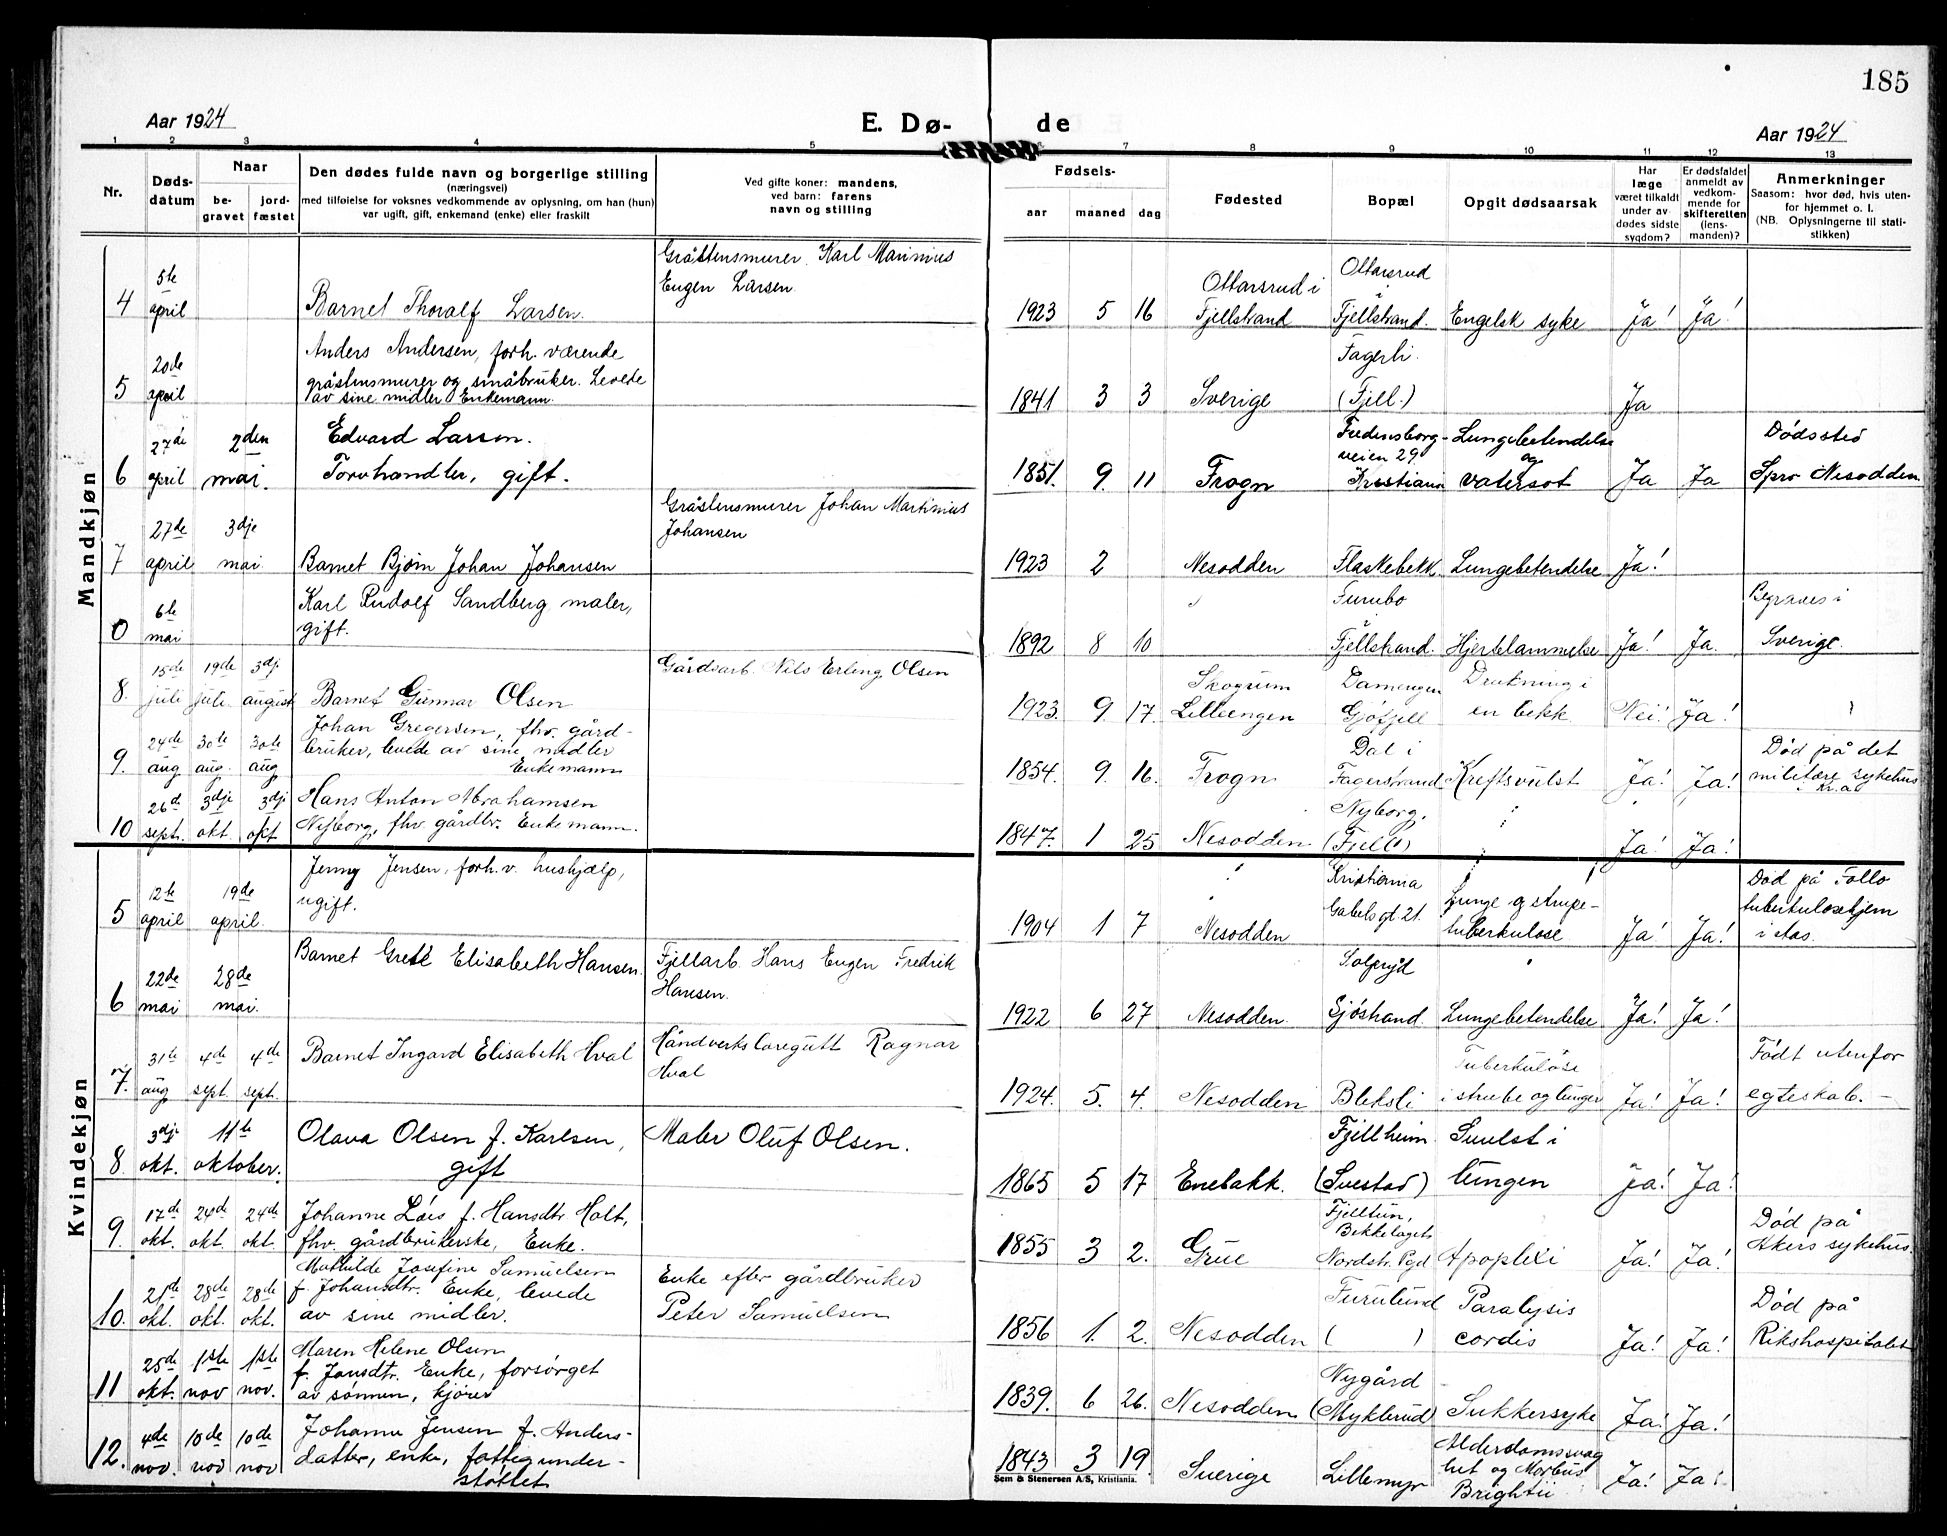 185
Aar 1924
E. Dø-
de
Aar 1924
1 2 3 4 5 6 7 8 9 10 11 12 13
Nr.
Døds-
datum
Naar
be-
gravet
jord-
fæstet
Den dødes fulde navn og borgerlige stilling
(næringsvei)
med tilføielse for voksnes vedkommende av oplysning, om han (hun)
var ugift, gift, enkemand (enke) eller fraskilt
Ved gifte koner: mandens,
ved barn: farens
navn og stilling
Fødsels-
aar maaned dag
Fødested
Bopæl
Opgit dødsaarsak
Har
læge
været tilkaldt
under av-
dødes sidste
sygdom?
Er dødsfaldet
anmeldt av
vedkom-
mende for
skifteretten
(lens-
manden)?
Anmerkninger
Saasom: hvor død, hvis uten-
for hjemmet o. l.
(NB. Oplysningerne til stati-
stikken)
Mandkjøn
4
5te
april
Barnet Thoralf Larsen.
Gråstensmurer Karl Marinius
Eugen Larsen
1923 5 16
Ottarsrud i
Fjellstrand
Ottarsrud
i
Fjellstrand.
Engelsk syke
Ja! Ja!
5
20de
april
Anders Andersen, forh. værende
gråstensmurer og småbruker. Levede
av sine midler Enkemann.
1841 3 3
Sverige
Fagerli.
(Fjell.)
Ja
6
27de
april
2den
mai.
Edvard Larsen.
Torvhandler, gift.
1851. 9. 11
Frogn
Fredensborg-
veien 29
Kristiania
Lungebetendelse
og
vatersot
Ja Ja
Dødssted
Spro Nesodden
7
27de
april
3dje
mai
Barnet Bjørn Johan Johansen
Gråstensmurer Johan Martinius
Johansen
1923 2
Nesodden
Flaskebekk
Lungebetendelse
Ja!
0
6te
mai
Karl Rudolf Sandberg maler,
gift.
1892 8 10
Furubo
Fjellstrand.
Hjertelammelse
Ja! Ja
Begraves i
Sverige.
8.
15de
juli
19de
juli.
3dje
august
Barnet Gunnar Olsen
Gårdsarb. Nils Erling Olsen
1923. 9. 17.
Skogrum
Lilleengen
Damengen
Gjøfjell
Drukning i
en bekk
Nei! Ja!
9.
24de
aug
30te
aug.
30te
aug
Johan Gregersen, fhv. gård-
bruker, levede av sine midler
Enkemann
1854. 9. 16.
Frogn
Dal i
Fagerstrand
Kreftsvulst
Ja! Ja!
Død på det
militære sykehus
i Kr.a
10
26de
sept.
3dje
okt.
3dje
okt
Hans Anton Abrahamsen
Nyborg, fhv. gårdbr. Enkemann.
1847. 1 25
Nesodden
Nyborg,
(Fjell)
Ja! Ja!
Kvindekjøn
5
12te
april
19de
april.
Jenny Jensen, forh. v. hushjælp,
ugift.
1904 1 7
Nesodden
Kristiania
Gabels gt. 21.
Lunge og strupe-
tuberkulose
Ja! Ja!
Død på Follo
tuberkulosehjem
i Aas.
6
22de
mai
28de
mai.
Barnet Grete Elisabeth Hansen.
Fjellarb. Hans Eugen Fredrik
Hansen.
1922 6 27
Nesodden.
Solfryd
Sjøstrand.
Lungebetendelse
Ja! Ja!
7.
31te
aug
4de
sept.
4de
sept.
Barnet Ingard Elisabeth Hval
Håndverkslæregutt Ragnar
Hval
1924. 5. 4.
Nesodden
Bleksli
Tuberkuløse
i strube og lunger
Ja! Ja!
Født utenfor
egteskab. -
8.
3dje
okt.
11te
oktober.
Olava Olsen f. Karlsen,
gift
Maler Oluf Olsen.
1865 5 17
Enebakk.
Fjellheim
(Svestad)
Svulst i
lungen
Ja! Ja!
9.
17de
okt.
24de
okt.
24de
okt.
Johanne Lóes f. Hansdtr. Holt,
fhv. gårdbrukerske, Enke.
1855 3 2.
Grue
Fjelltun,
Bekkelagets
Nordstr. Pgd
Apoplexi
Ja! Ja!
Død på
Akers sykehus.
10.
21de
okt.
28de
okt.
28de
okt.
Mathilde Josefine Samuelsen
f. Johansdtr. Enke, levede
av sine midler.
Enke efter gårdbruker
Peter Samuelsen
1856 1. 2.
Nesodden
Furulund
( )
Paralysis
cordis
Ja! Ja!
Død på
Rikshospitalet
11
25de
okt.
1ste
nov
1ste
nov.
Maren Helene Olsen
f. Jonsdtr. Enke, forsørget
av sønnen, kjører
1839. 6 26.
Nesodden
Nygård
(Myklerud)
Sukkersyke
Ja! Ja!
12.
4de
nov.
10de
nov
10de
nov
Johanne Jensen f. Anders-
datter, enke, fattigunder-
støttet
1843 3 19.
Sverige
Lillemyr
Alderdomssvag
het og Morbus
Brightii
Ja! Ja!
Sem & Stenersen A/S, Kristiania.